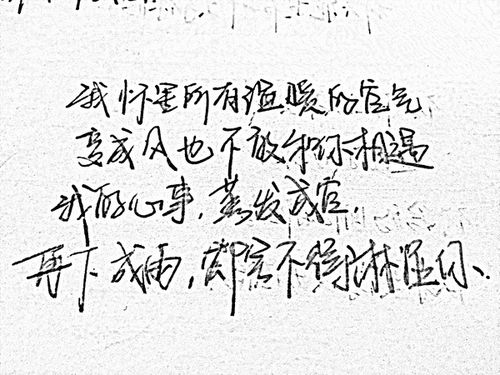 我怀里所有温暖的空气
变成风也不敢和你相遇
我的心事,蒸发成云,
再下成雨,却舍不得淋湿你、